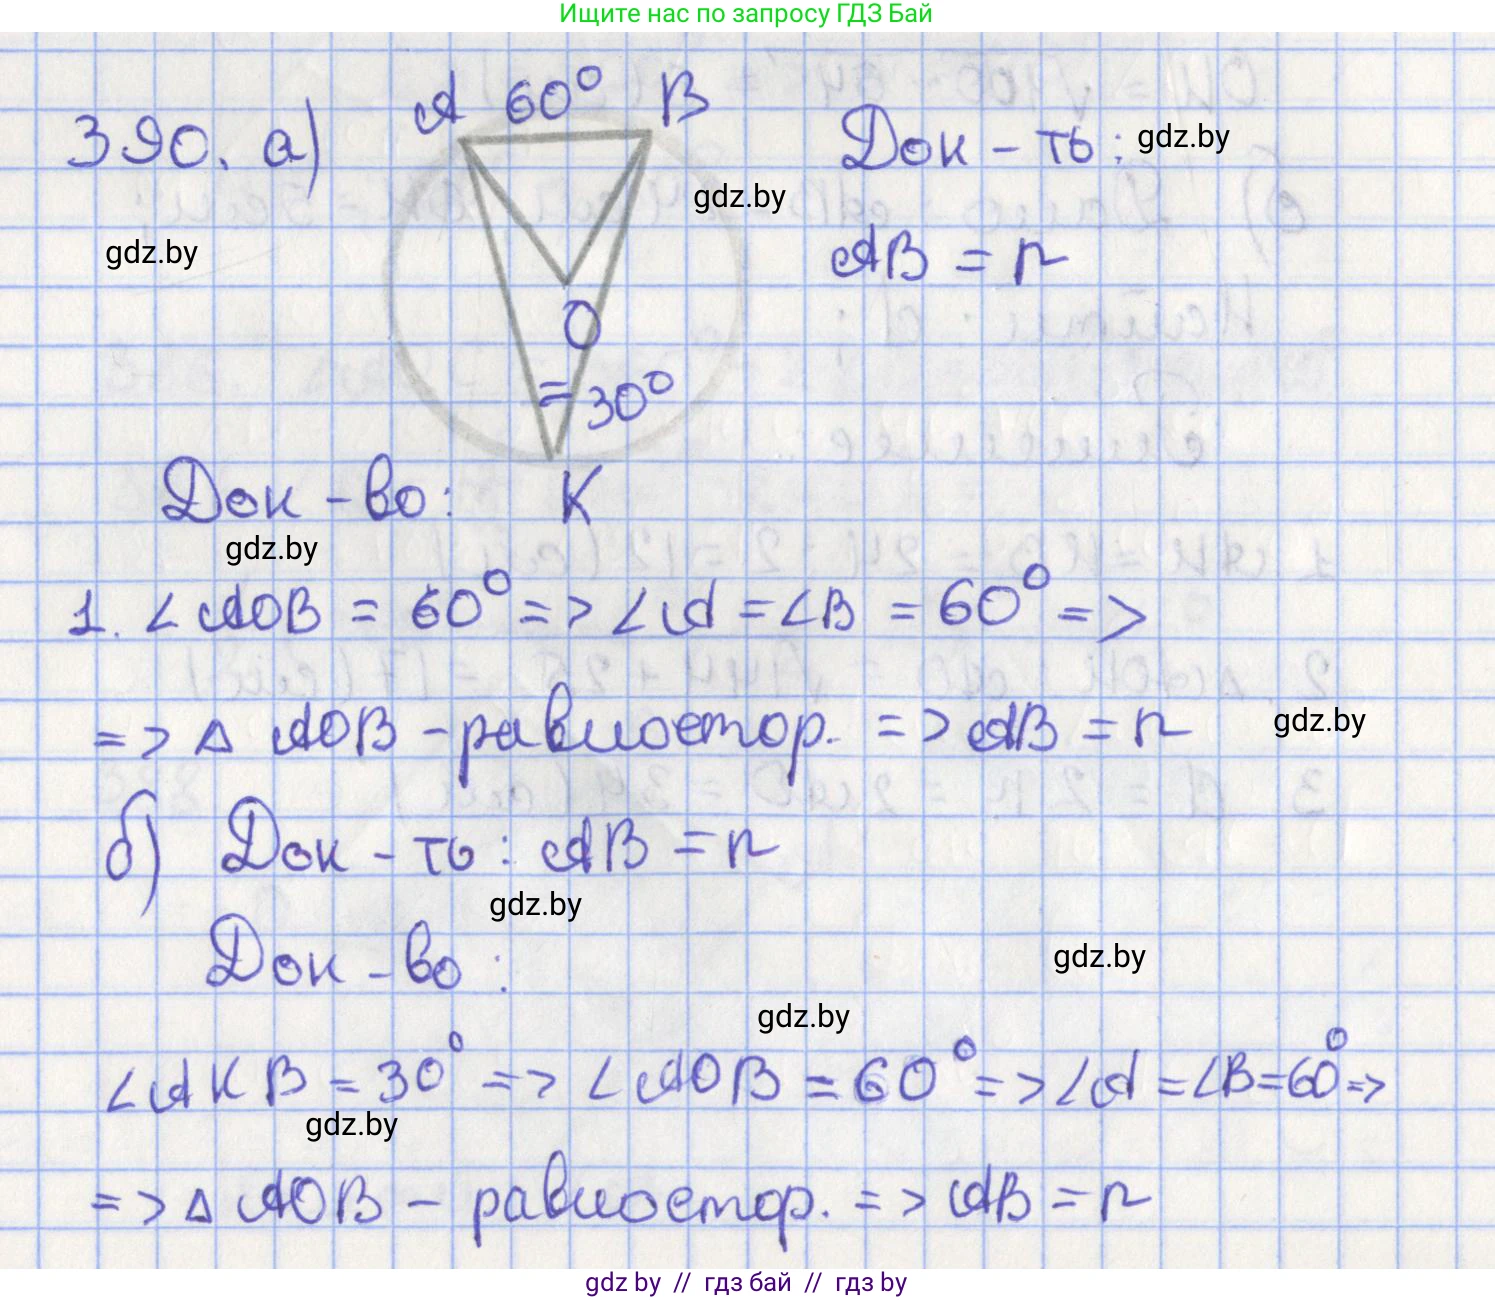 Ищите нас по запросу ГДЗ Бай
390. а)
A 60° B
Док-ть: gdz.by
gdz.by
AB = r
gdz.by
O
30°
Док-во: K
gdz.by
1. ∠AOB = 60° => ∠A = ∠B = 60° =>
=> Δ AOB - равностор. => AB = r
gdz.by
б) Док-ть: AB = r
gdz.by
Док-во:
gdz.by
gdz.by
∠AKB = 30° => ∠AOB = 60° => ∠A = ∠B = 60° =>
gdz.by
=> Δ AOB - равностор. => AB = r
gdz.by // гдз бай // гдз by